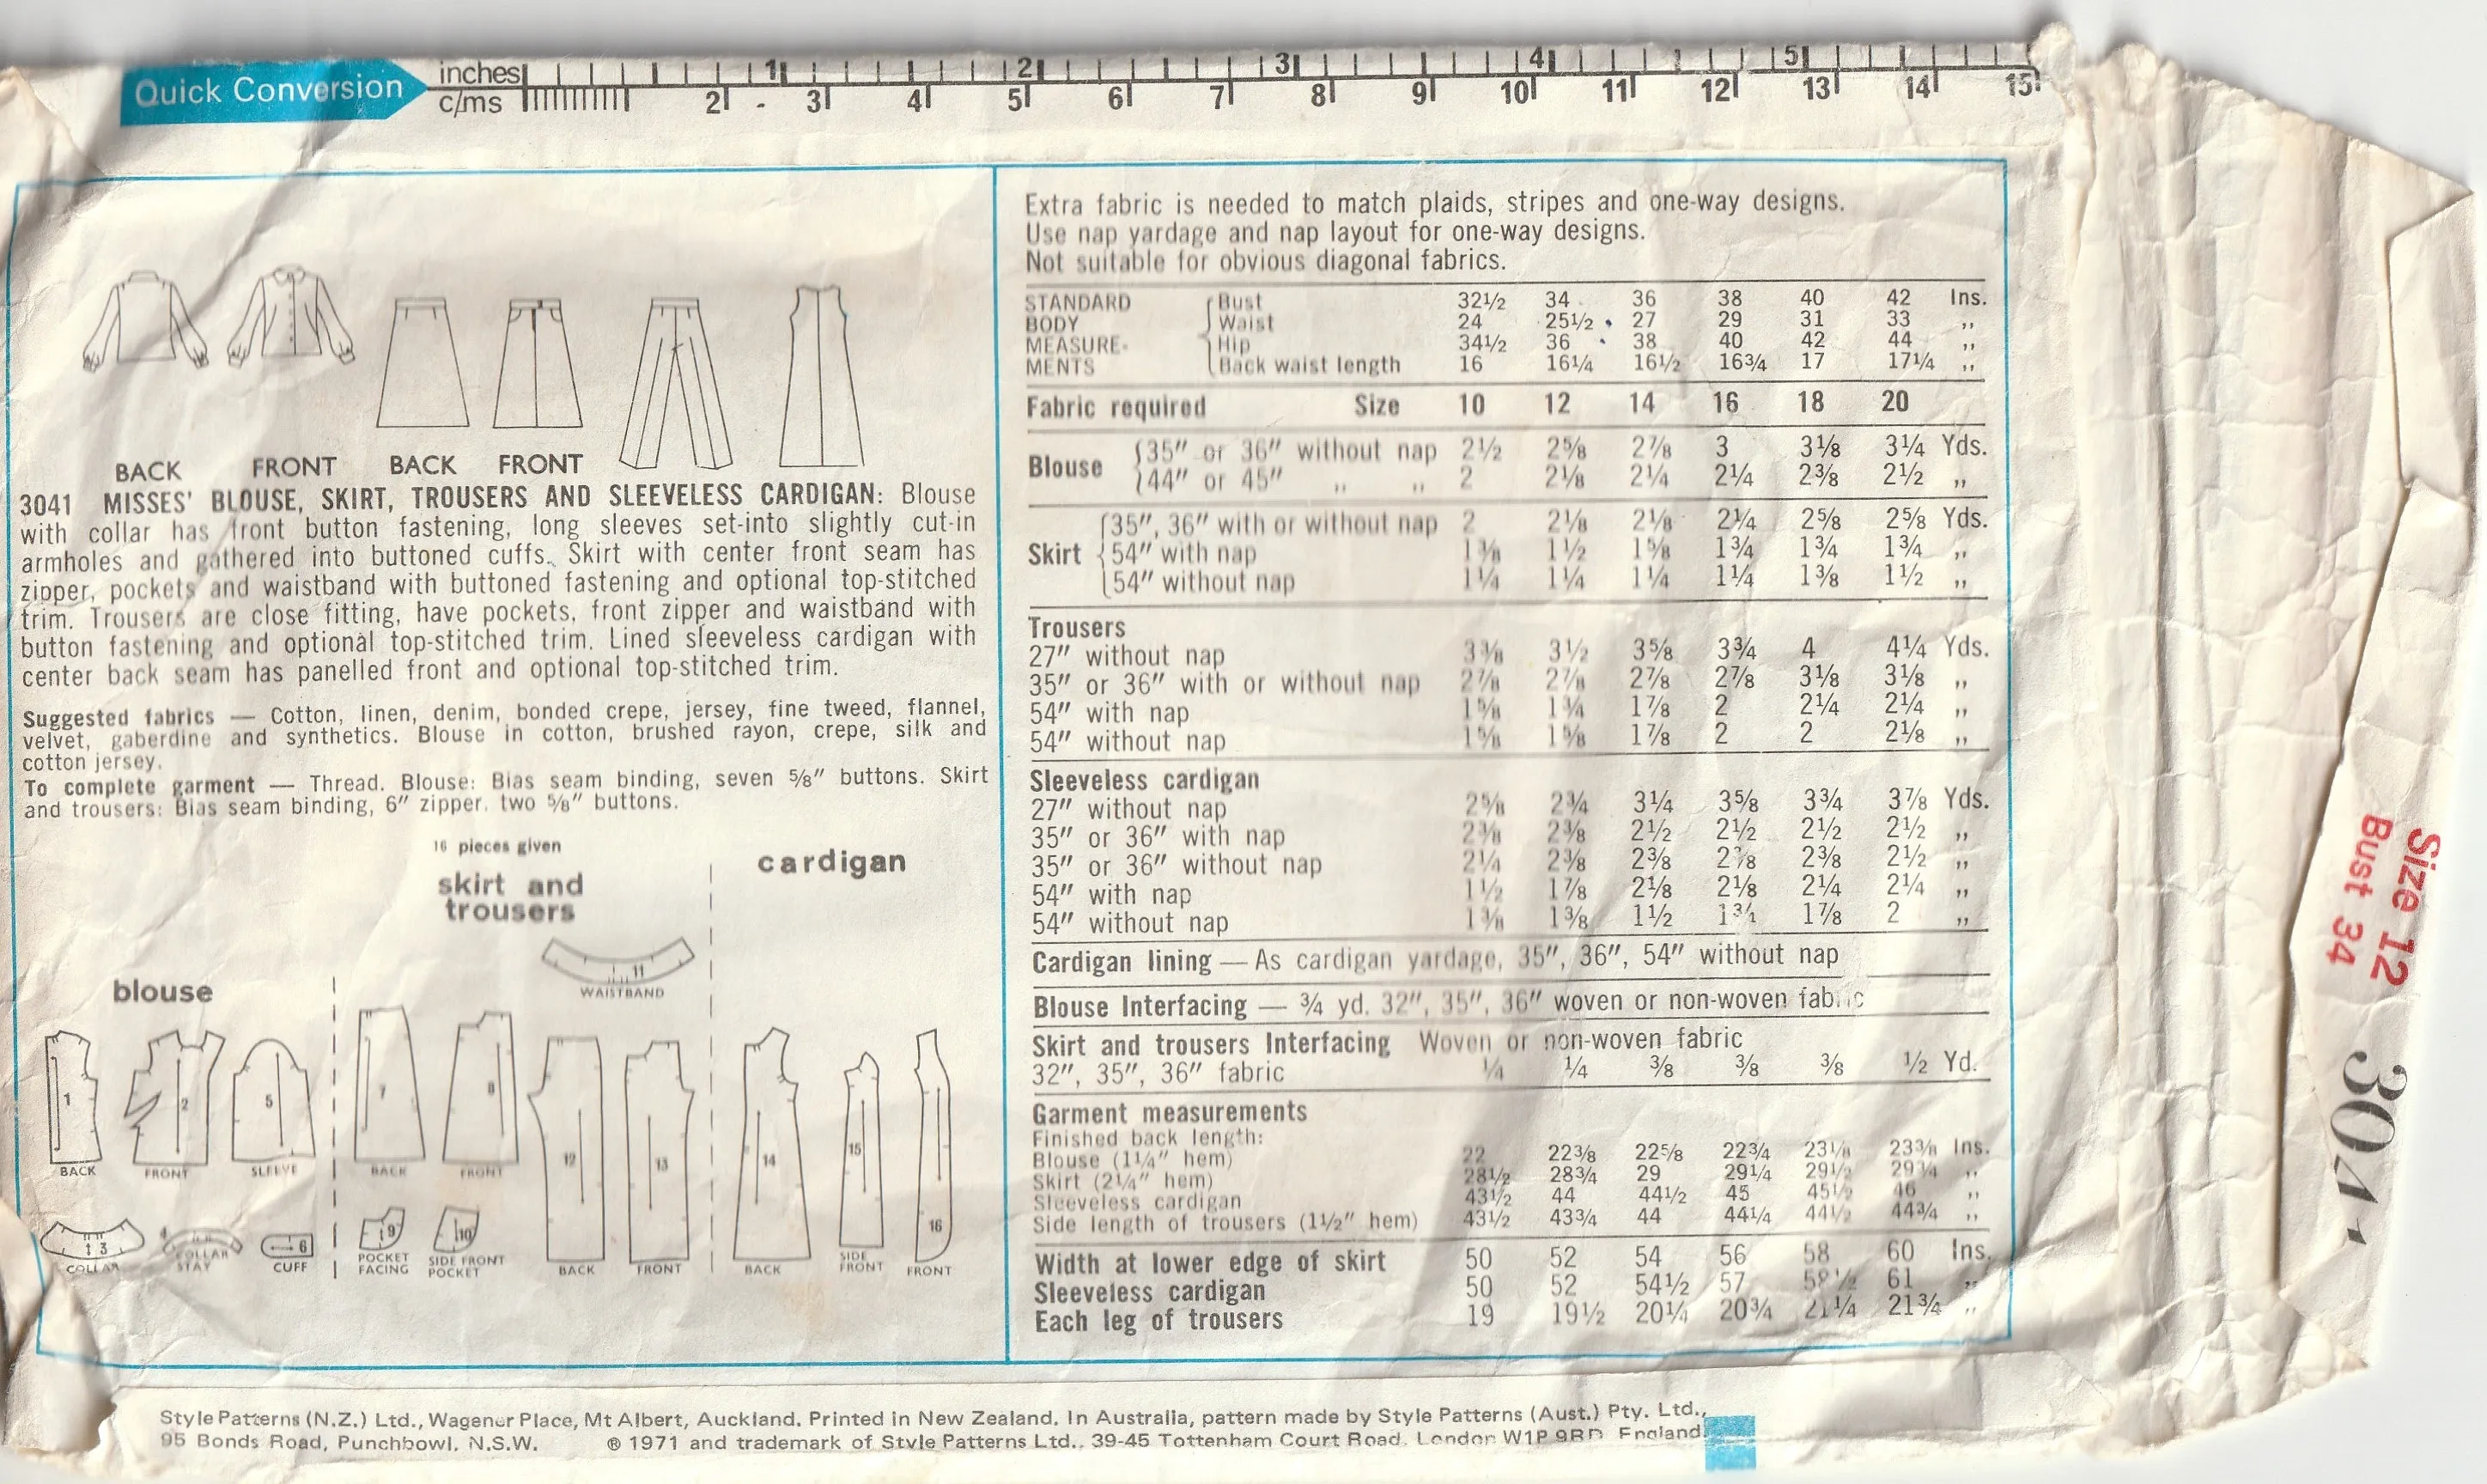 Quick Conversion
inches 1 2 3 4 5
c/ms 2 3 4 5 6 7 8 9 10 11 12 13 14 15
BACK FRONT BACK FRONT
3041 MISSES' BLOUSE, SKIRT, TROUSERS AND SLEEVELESS CARDIGAN: Blouse
with collar has front button fastening, long sleeves set-into slightly cut-in
armholes and gathered into buttoned cuffs. Skirt with center front seam has
zipper, pockets and waistband with buttoned fastening and optional top-stitched
trim. Trousers are close fitting, have pockets, front zipper and waistband with
button fastening and optional top-stitched trim. Lined sleeveless cardigan with
center back seam has panelled front and optional top-stitched trim.
Suggested fabrics — Cotton, linen, denim, bonded crepe, jersey, fine tweed, flannel,
velvet, gaberdine and synthetics. Blouse in cotton, brushed rayon, crepe, silk and
cotton jersey.
To complete garment — Thread. Blouse: Bias seam binding, seven 5/8" buttons. Skirt
and trousers: Bias seam binding, 6" zipper, two 5/8" buttons.
16 pieces given
blouse
1 2 5
BACK FRONT SLEEVE
3 4 6
COLLAR COLLAR STAY CUFF
skirt and
trousers
11
WAISTBAND
7 8 12 13
BACK FRONT
9 10
POCKET FACING SIDE FRONT POCKET BACK FRONT
cardigan
14 15 16
BACK SIDE FRONT FRONT
Extra fabric is needed to match plaids, stripes and one-way designs.
Use nap yardage and nap layout for one-way designs.
Not suitable for obvious diagonal fabrics.
STANDARD Bust 32½ 34 36 38 40 42 Ins.
BODY Waist 24 25½ 27 29 31 33 ,,
MEASURE- Hip 34½ 36 38 40 42 44 ,,
MENTS Back waist length 16 16¼ 16½ 16¾ 17 17¼ ,,
Fabric required Size 10 12 14 16 18 20
Blouse 35" or 36" without nap 2½ 2⅝ 2⅞ 3 3⅛ 3¼ Yds.
44" or 45" ,, ,, 2 2⅛ 2¼ 2¼ 2⅜ 2½ ,,
Skirt 35", 36" with or without nap 2 2⅛ 2⅛ 2¼ 2⅝ 2⅝ Yds.
54" with nap 1⅜ 1½ 1⅝ 1¾ 1¾ 1¾ ,,
54" without nap 1¼ 1¼ 1¼ 1¼ 1⅜ 1½ ,,
Trousers
27" without nap 3⅜ 3½ 3⅝ 3¾ 4 4¼ Yds.
35" or 36" with or without nap 2⅞ 2⅞ 2⅞ 2⅞ 3⅛ 3⅛ ,,
54" with nap 1⅝ 1¾ 1⅞ 2 2¼ 2¼ ,,
54" without nap 1⅝ 1⅝ 1⅞ 2 2 2⅛ ,,
Sleeveless cardigan
27" without nap 2⅝ 2¾ 3¼ 3⅝ 3¾ 3⅞ Yds.
35" or 36" with nap 2⅜ 2⅜ 2½ 2½ 2½ 2½ ,,
35" or 36" without nap 2¼ 2⅜ 2⅜ 2⅜ 2½ ,,
54" with nap 1½ 1⅞ 2⅛ 2⅛ 2¼ 2¼ ,,
54" without nap 1⅜ 1⅜ 1½ 1¾ 1⅞ 2 ,,
Cardigan lining — As cardigan yardage, 35", 36", 54" without nap
Blouse Interfacing — ¾ yd. 32", 35", 36" woven or non-woven fabric
Skirt and trousers Interfacing Woven or non-woven fabric
32", 35", 36" fabric ¼ ¼ ⅜ ⅜ ⅜ ½ Yd.
Garment measurements
Finished back length:
Blouse (1¼" hem) 22 22⅜ 22⅝ 22¾ 23⅛ 23⅜ Ins.
Skirt (2¼" hem) 28½ 28¾ 29 29¼ 29½ 29¾ ,,
Sleeveless cardigan 43½ 44 44½ 45 45½ 46 ,,
Side length of trousers (1½" hem) 43½ 43¾ 44 44¼ 44½ 44¾ ,,
Width at lower edge of skirt 50 52 54 56 58 60 Ins.
Sleeveless cardigan 50 52 54½ 57 58½ 61 ,,
Each leg of trousers 19 19½ 20¼ 20¾ 21¼ 21¾ ,,
Size 12
Bust 34
3041
Style Patterns (N.Z.) Ltd., Wagener Place, Mt Albert, Auckland. Printed in New Zealand. In Australia, pattern made by Style Patterns (Aust.) Pty. Ltd.,
95 Bonds Road, Punchbowl, N.S.W. ® 1971 and trademark of Style Patterns Ltd., 39-45 Tottenham Court Road, London W1P 9RD England